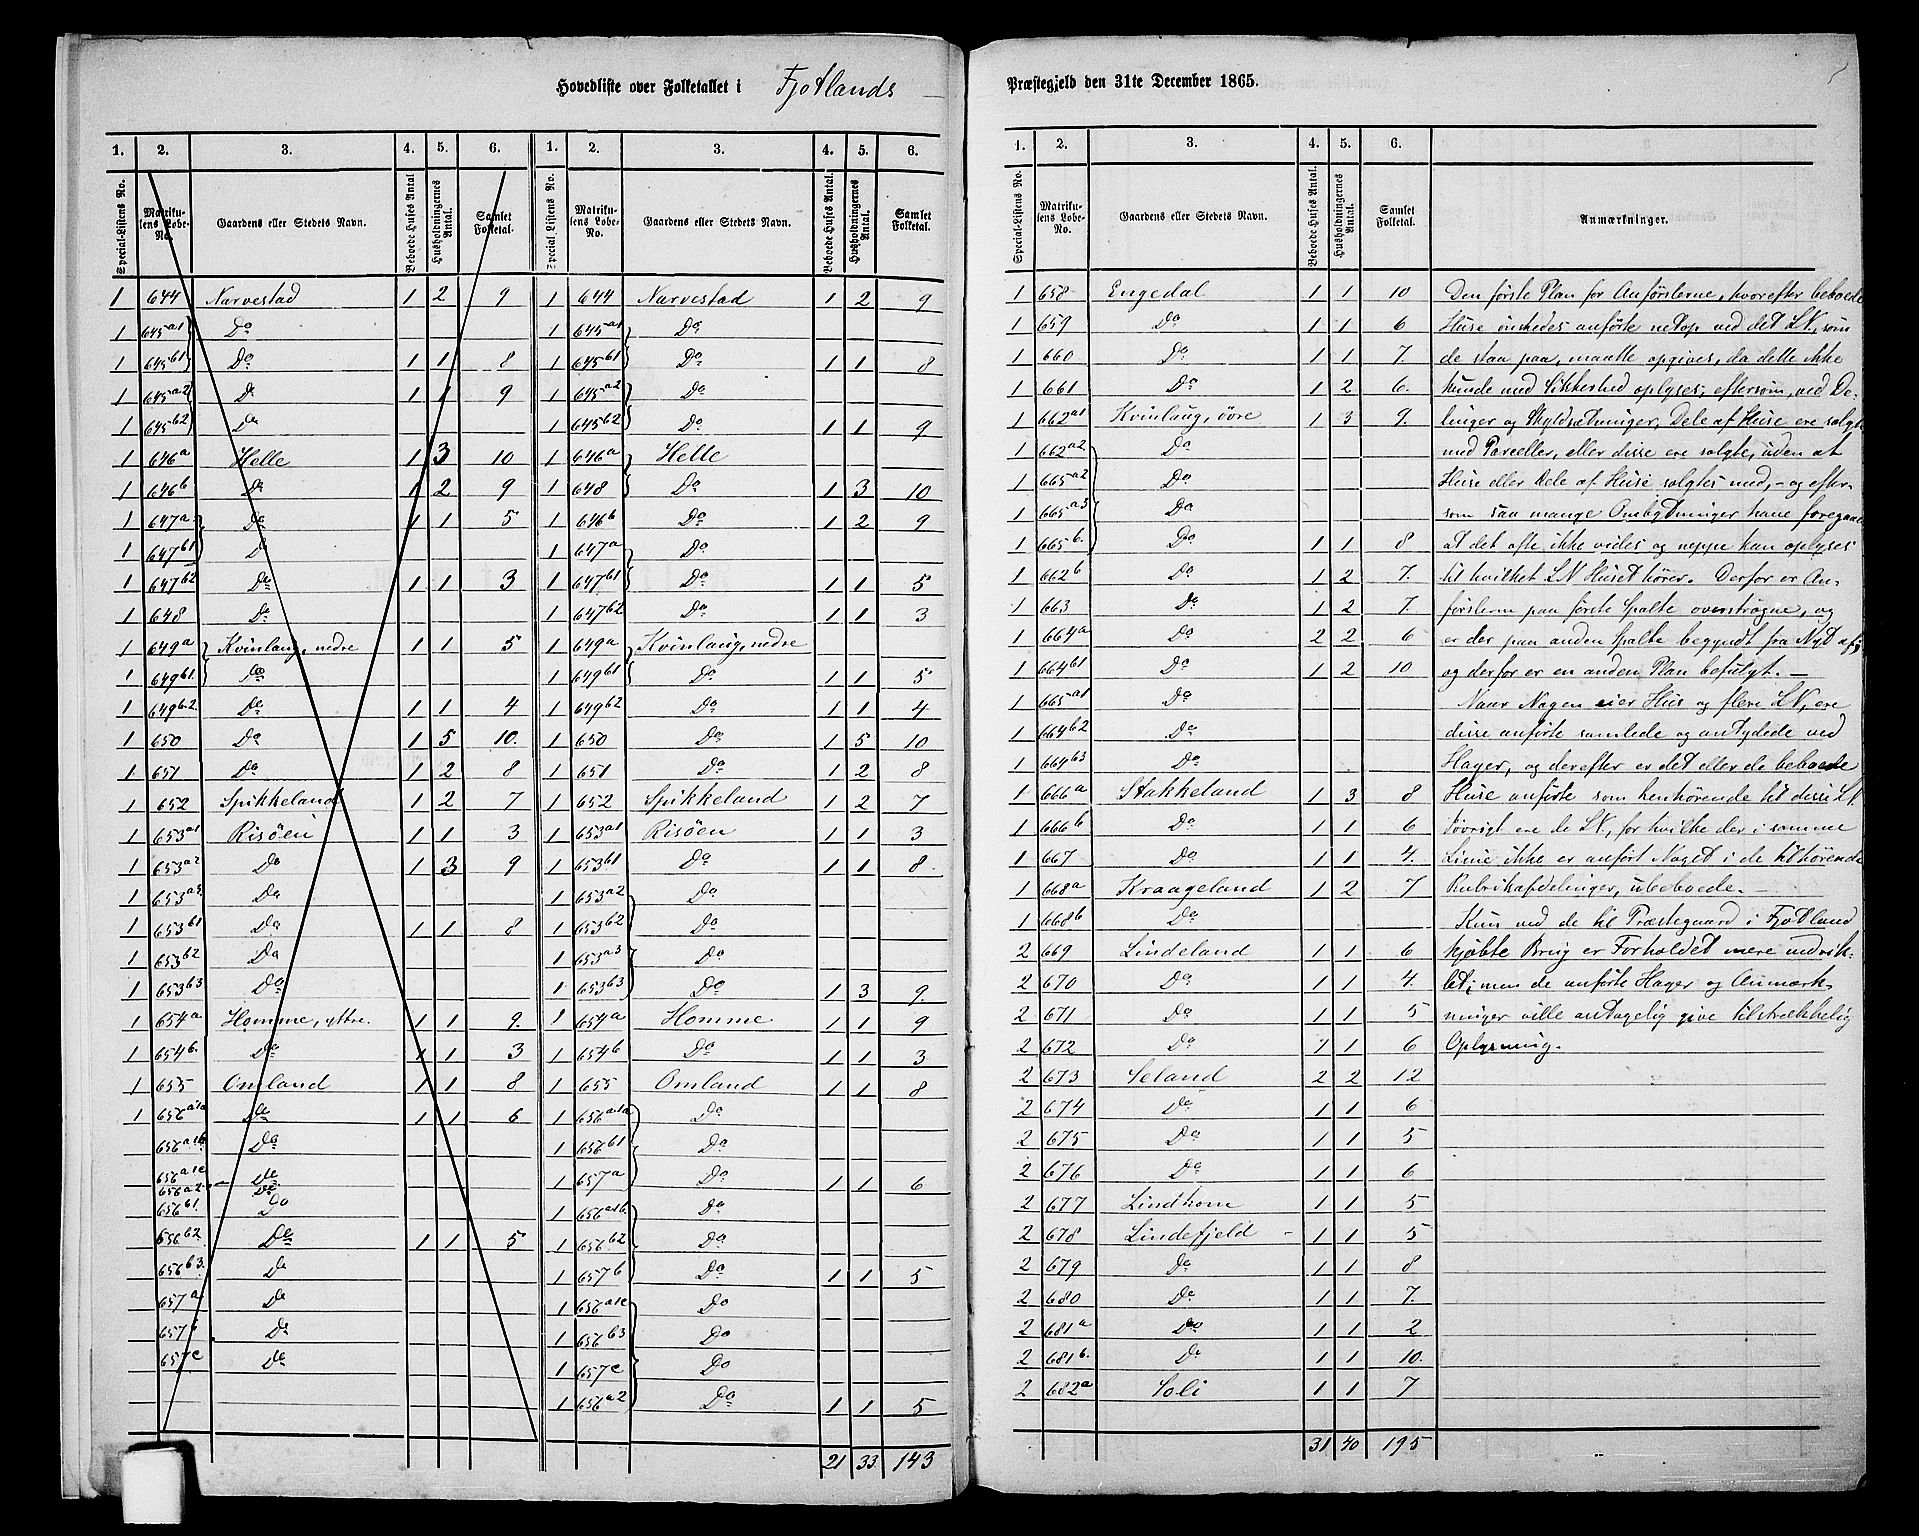 Hovedliste over Folketallet i Fjotlands
1. 2. 3. 4. 5. 6. 1. 2. 3. 4. 5. 6.
Special-Listens No. Matrikulens Lobe-No. Gaardens eller Stedets Navn. Beboede Huses Antal Husholdningernes Antal. Samlet Folketal. Special Listens No. Matrikulens Lobe-No. Gaardens eller Stedets Navn. Beboede Huses Antal. Husholdningernes Antal. Samlet Folketal.
1 644 Narvestad 1 2 9 1 644 Narvestad 1 2 9
1 645a1 Do 1 645a1 Do
1 645b1 Do 1 1 8 1 645b1 Do 1 1 8
1 645a2 Do 1 1 9 1 645a2 Do
1 645b2 Do 1 645b2 Do 1 1 9
1 646a Helle 1 3 10 1 646a Helle
1 646b Do 1 2 9 1 648 Do 1 3 10
1 647a Do 1 1 5 1 646b Do 1 2 9
1 647b1 Do 1 647a Do
1 647b2 Do 1 1 3 1 647b1 Do 1 1 5
1 648 Do 1 647b2 Do 1 1 3
1 649a Kvinlaug, nedre 1 1 5 1 649a Kvinlaug, nedre
1 649b1. Do 1 649b1 Do 1 1 5
1 649b2. Do 1 1 4 1 649b2 Do 1 1 4
1 650 Do 1 5 10. 1 650 Do 1 5 10
1 651 Do 1 2 8 1 651 Do 1 2 8
1 652 Spikkeland 1 2 7 1 652 Spikkeland 1 2 7
1 653a1 Risöen 1 1 3 1 653a1 Risöen 1 1 3
1 653a2 Do 1 3 9 1 653b1 Do 1 1 8.
1 653a3. Do 1 653a2 Do
1 653b1 Do 1 1 8 1 653b2 Do
1 653b2 Do 1 653a3 Do
1 653b3 Do 1 653b3 Do 1 3 9.
1 654a Homme, yttre. 1 1 9. 1 654a Homme 1 1 9
1 654b. Do 1 1 3 1 654b Do 1 1 3
1 655 Omland 1 1 8 1 655 Omland 1 1 8
1 656a1a Do 1 1 6 1 656a1a Do
656a1b. Do 1 656b1 Do
656a1c Do 1 657a Do 1 1 6
656a2 Do
656b1. Do 1 656a1b. Do
656b2 Do 1 1 5 1 656b2 Do
656b3. Do 1 657b Do 1 1 5
657a Do 1 656a1c Do
657b Do 1 656b3 Do
657c Do 1 657c Do
1 656a2 Do 1 1 5
21 33. 143
Præstegjeld den 31te December 1865.
5
1. 2. 3. 4. 5. 6.
Special-Listens No. Matrikulens Lobe-No. Gaardens eller Stedets Navn. Beboede Huses Antal. Husholdningernes Antal. Samlet Folketal. Anmærkninger.
1 658 Engedal 1 1 10 Den förste Plan for Anförslerne, hvorefter beboede
1 659 Do 1 1 6 Huse önskedes anförte netop ved det LN., som
1 660 Do 1 1 7. de staa paa, maatte opgives, da dette ikke
1 661 Do 1 2 6. kunde med Sikkerhed oplyses, eftersom, ved De-
1 662a1 Kvinlaug, övre 1 3 9. linger og Skyldsætninger, Dele af Huse ere solgte
1 662a2 Do med Parceller, eller disse ere solgte, uden at
1 665a2 Do Huse eller Dele af Huse solgtes med, - og efter-
1 665a3 Do som saa mange Ombytninger have foregaaet
1 665b. Do 1 1 8 at det ofte ikke vides og neppe kan oplyses
1 662b Do 1 2 7. til hvilket LN Huset hörer. Derfor er An-
1 663 Do 1 2 7. förslerne paa förste Spalte overströgne, og
1 664a Do 2 2 6 er der paa anden Spalte begyndt fra Nyt af,
1 664b1 Do 1 2 10 og derfor er en anden Plan befulgt. -
1 665a1 Do Naar Nogen eier Hus og flere LN, ere
1 664b2 Do disse anförte samlede og antydede ved
1 664b3 Do Hager, og derefter er det eller de beboede
1 666a Stakkeland 1 3 8 Huse anförte som henhörende til disse LN.
1 666b Do 1 1 6 Iövrigt ere de LN, for hvilke der i samme
1 667 Do 1 1 4. Linie ikke er anfört Noget i de tilhörende
1 668a Kraageland 1 2 7 Rubrikafdelinger, ubeboede. -
1 668b Do Kun ved de til Præstegaard i Fjotland
2 669 Lindeland 1 1 6 kjöbte Brug er Forholdet mere indvik-
2 670 Do 1 1 4. let; men de anförte Hager og Anmærk-
2 671 Do 1 1 5 ninger ville antagelig give tilstrækkelig
2 672 Do 1 1 6 Oplysning.
2 673 Seland 2 2 12
2 674 Do 1 1 6
2 675 Do 1 1 5
2 676 Do 1 1 6
2 677 Lindhom 1 1 5
2 678 Lindefjeld - 1 1 5
2 679 Do 1 1 8
2 680 Do 1 1 7.
2 681a Do 1 1 2
2 681b. Do 1 1 10.
2 682a Soli 1 1 7
31 40 195